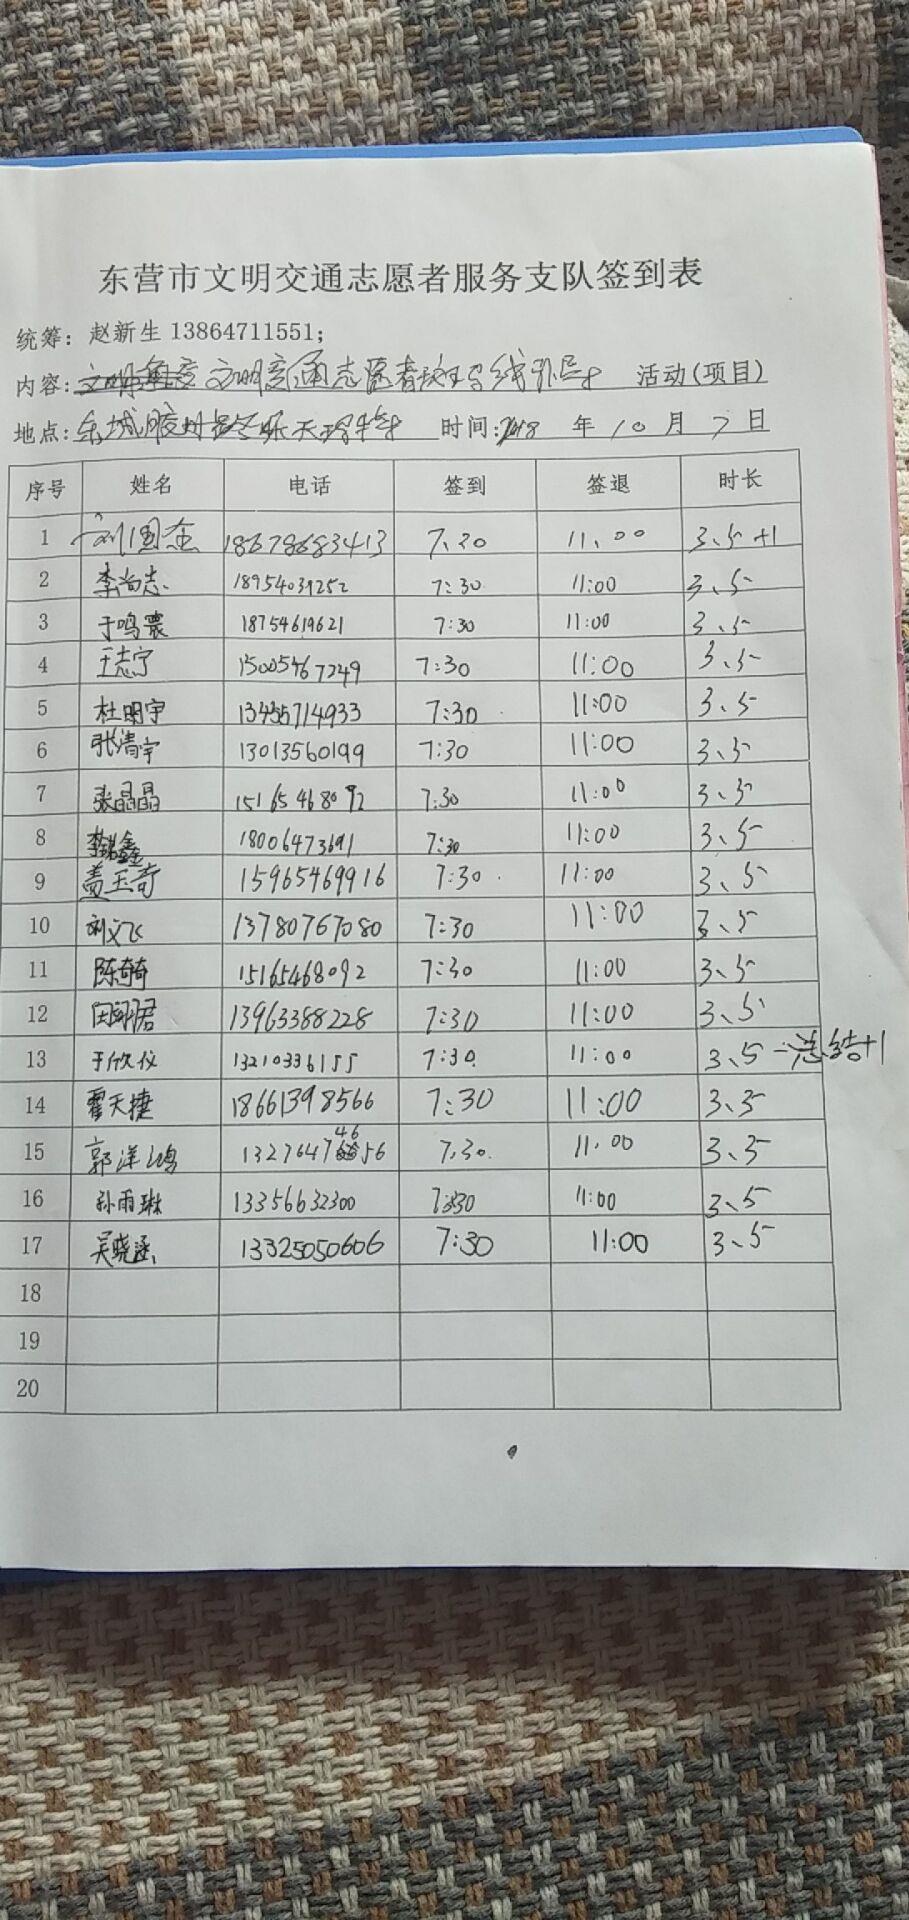 东营市文明交通志愿者服务支队签到表
统筹：赵新生 13864711551；
内容：文明交通志愿者 线引导 活动(项目)
地点：东城胶州路 时间：2018 年 10 月 7 日
序号 姓名 电话 签到 签退 时长
1 刘国金 18678683413 7.30 11.00 3、5+1
2 李尚志 18954039252 7:30 11:00 3、5
3 于鸣震 18754619621 7:30 11:00 3、5
4 王志宁 15005467249 7:30 11:00 3、5
5 杜明宇 13455714933 7:30 11:00 3、5
6 张清宇 13013560199 7:30 11:00 3、5
7 张晶晶 15165468092 7:30 11:00 3、5
8 李鑫 18006473691 7:30 11:00 3、5
9 盖玉奇 15965469916 7:30 11:00 3、5
10 刘文飞 13780767080 7:30 11:00 3、5
11 陈奇奇 15165468092 7:30 11:00 3、5
12 田翔君 13963388228 7:30 11:00 3、5
13 于欣仪 13210336155 7:30 11:00 3、5 一总结+1
14 霍天捷 18661398566 7:30 11:00 3、5
15 郭洋鸿 13276474656 7.30 11.00 3、5
16 孙雨琳 13356632300 7:30 11:00 3、5
17 吴晓涵 13325050606 7:30 11:00 3、5
18
19
20